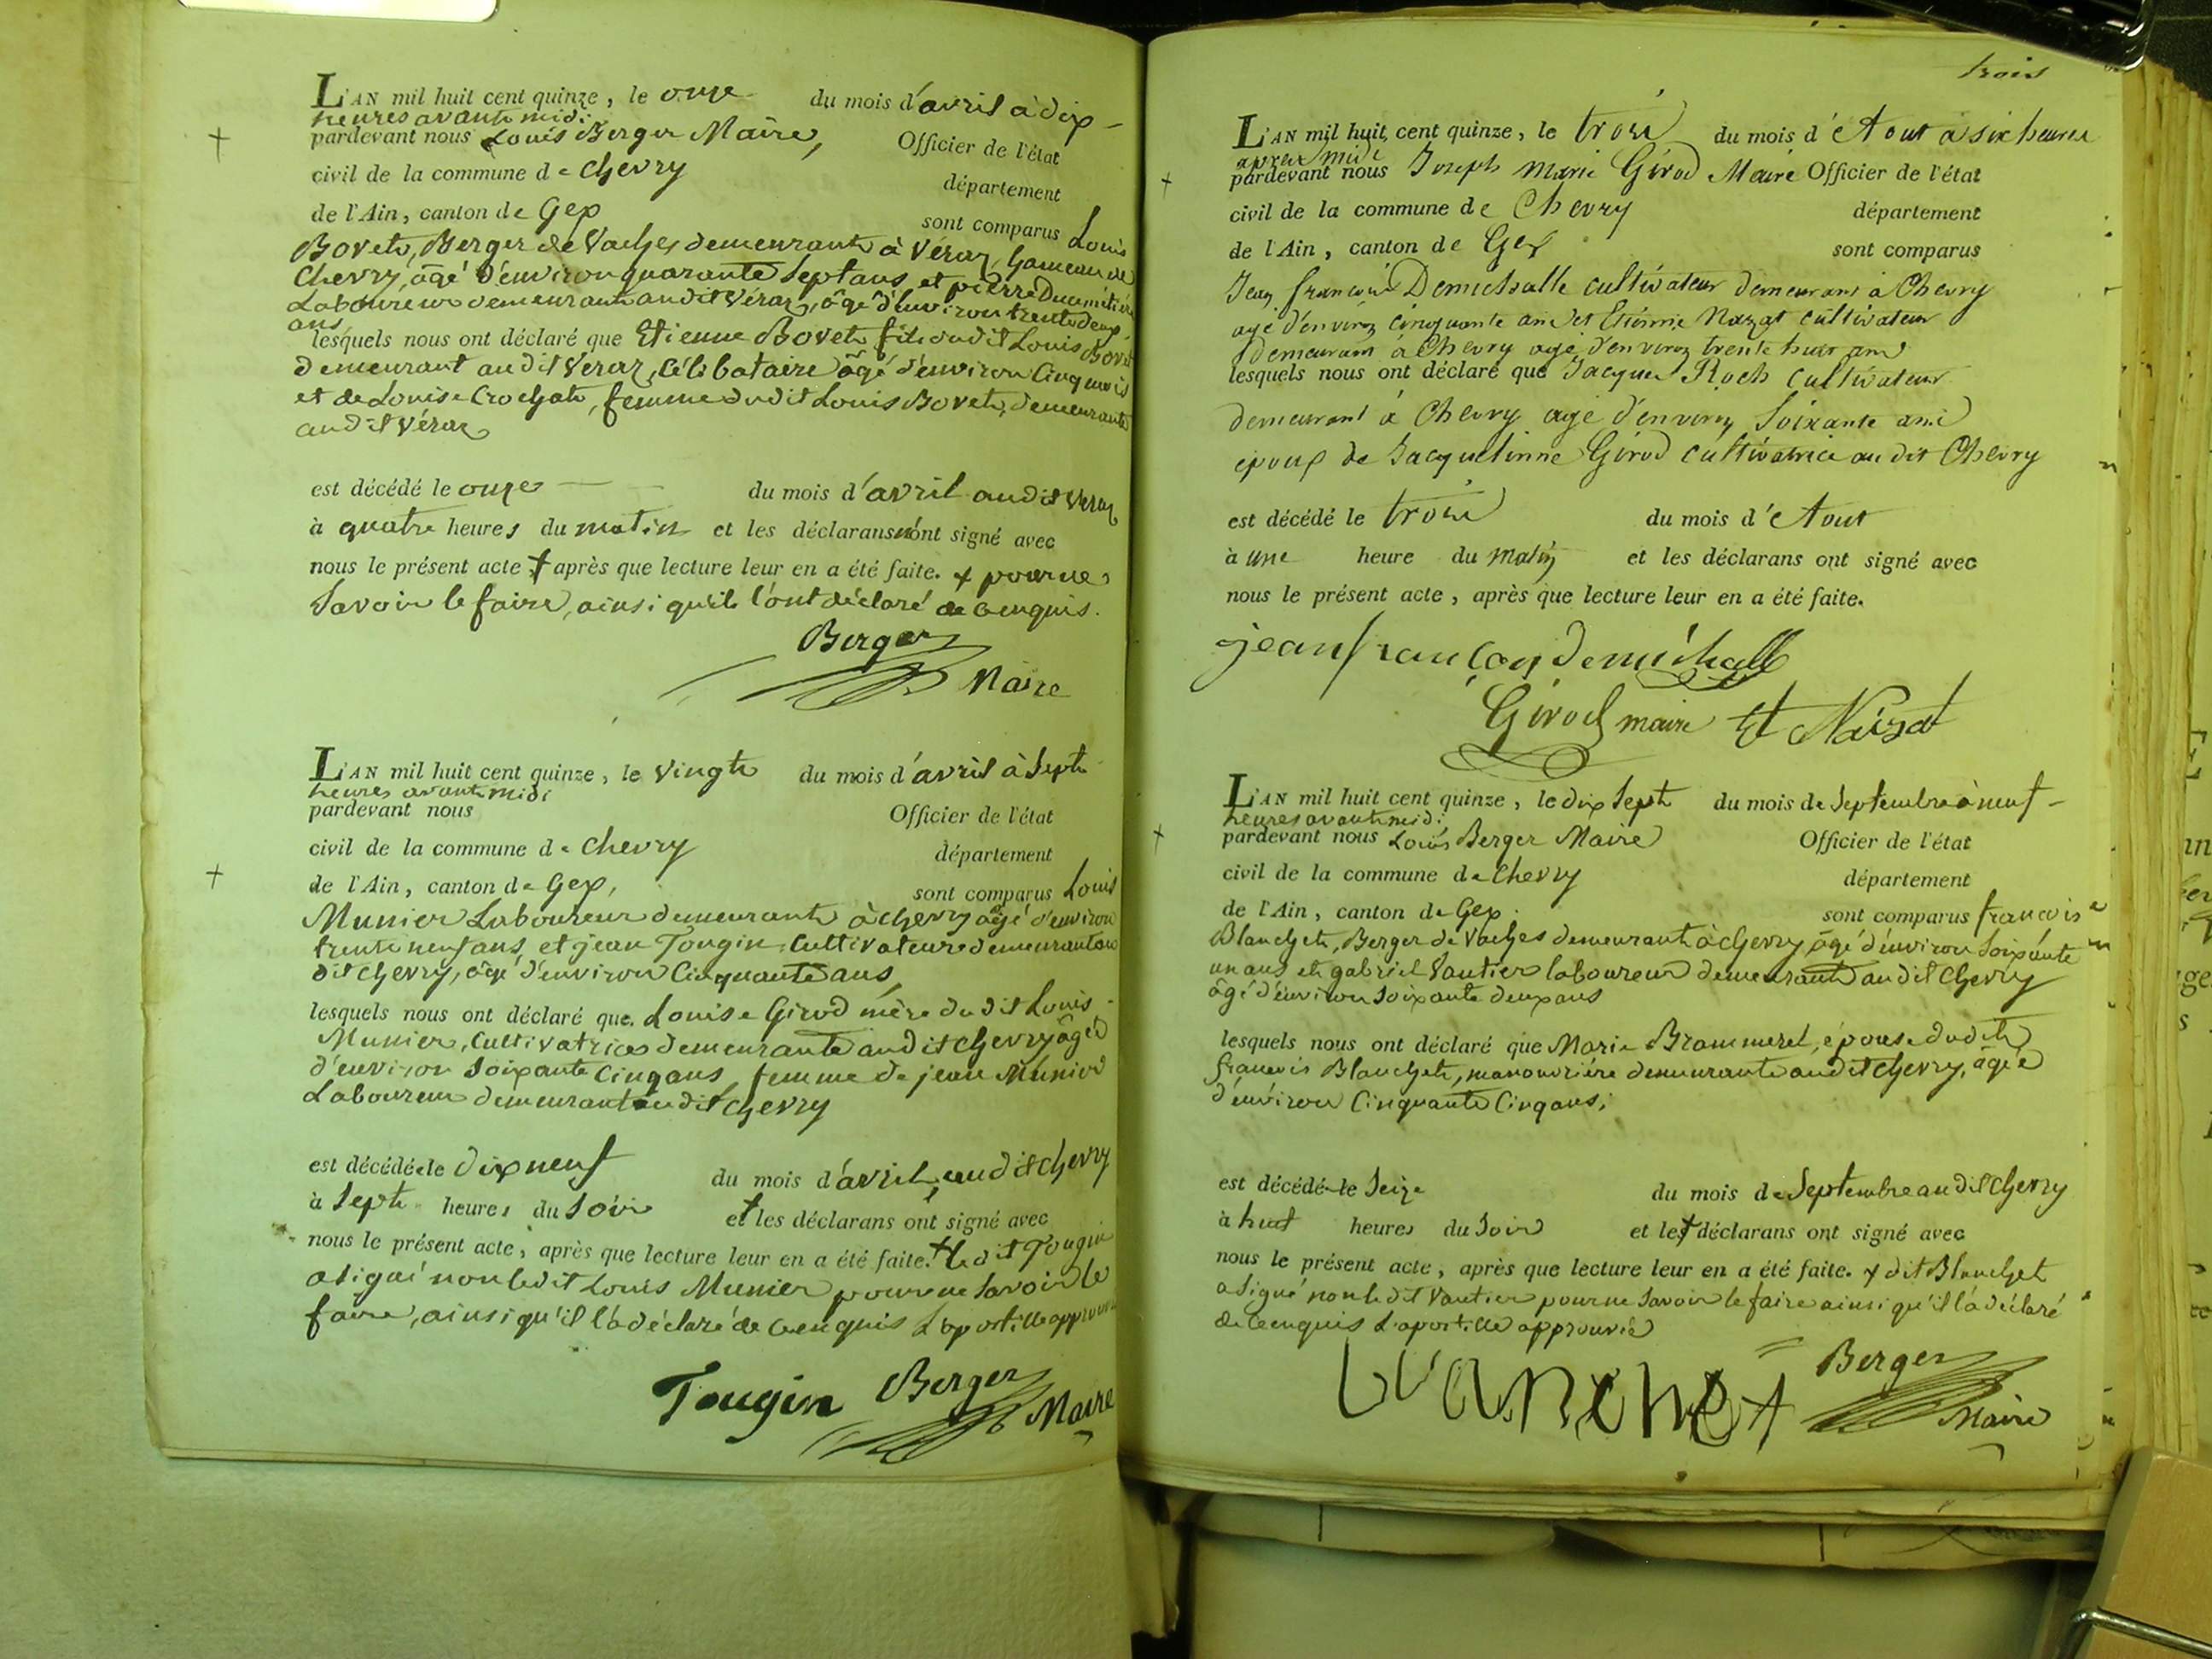 L'AN mil huit cent quinze, le onze du mois d'avril à dix
heures avant midi
pardevant nous Louis Berger Maire, Officier de l'état
civil de la commune de Chevry département
de l'Ain, canton de Gex sont comparus Louis
Bovet, Berger de Vaches demeurant à Véraz, hameau de
Chevry, âgé d'environ quarante Sept ans, et pierre
Laboureur demeurant audit Véraz, âgé d'environ trente deux
ans
lesquels nous ont déclaré que Etienne Bovet fils dudit Louis Bovet
demeurant audit Veraz, Célibataire âgé d'environ Cinq mois
et de Louise Crochat, femme dudit Louis Bovet, demeurante
audit Véraz
est décédé le onze du mois d'avril audit Veraz
à quatre heures du matin et les déclarans n'ont signé avec
nous le présent acte + après que lecture leur en a été faite. + pour ne
Savoir le faire, ainsi qu'ils l'ont déclaré de ce enquis.
Berger
Maire
L'AN mil huit cent quinze, le Vingt du mois d'avril à Sept
heures avant midi
pardevant nous Officier de l'état
civil de la commune de Chevry département
de l'Ain, canton de Gex, sont comparus Louis
Munier Laboureur demeurant à Chevry âgé d'environ
trente neuf ans, et jean Tougin, Cultivateur demeurant au
dit Chevry, âgé d'environ Cinquante ans,
lesquels nous ont déclaré que Louise Girod mère dudit Louis
Munier, Cultivatrice demeurante audit Chevry âgée
d'environ Soixante Cinq ans, femme de jean Munier
Laboureur demeurant audit Chevry
est décédée le dix neuf du mois d'avril, audit Chevry
à Sept heures du Soir et + les déclarans ont signé avec
nous le présent acte, après que lecture leur en a été faite. + le dit Tougin
a signé non ledit Louis Munier pour ne savoir le
faire, ainsi qu'il l'a déclaré de ce enquis L'apostille approuvée
Tougin Berger
Maire
trois
L'AN mil huit cent quinze, le trois du mois d'Aout à six heures
apres midi
pardevant nous Joseph Marie Girod Maire Officier de l'état
civil de la commune de Chevry département
de l'Ain, canton de Gex sont comparus
Jean françois Demichalle cultivateur demeurant à Chevry
agé d'environ cinquante ans et Etienne Nazat cultivateur
demeurant à Chevry agé d'environ trente huit ans
lesquels nous ont déclaré que Jacques Roch cultivateur
demeurant à Chevry agé d'environ soixante ans
epoux de Jacquelinne Girod cultivatrice au dit Chevry
est décédé le trois du mois d'Aout
à une heure du matin et les déclarans ont signé avec
nous le présent acte, après que lecture leur en a été faite.
jean françoy demichall
Girod maire Et Naizat
L'AN mil huit cent quinze, le dix Sept du mois de Septembre à neuf
heures avant midi
pardevant nous Louis Berger Maire Officier de l'état
civil de la commune de Chevry département
de l'Ain, canton de Gex. sont comparus francois
Blanchet, Berger de Vaches demeurant à Chevry, âgé d'environ soixante
un ans et gabriel Vautier laboureur demeurant audit Chevry
âgé d'environ soixante deux ans
lesquels nous ont déclaré que Marie Brammerel, épouse dudit
francois Blanchet, manouvrière demeurante audit Chevry, âgée
d'environ Cinquante Cinq ans;
est décédée le Seize du mois de Septembre audit Chevry
à huit heures du Soir et les + déclarans ont signé avec
nous le présent acte, après que lecture leur en a été faite. + dit Blanchet
a signé non ledit Vautier pour ne Savoir le faire ainsi qu'il l'a déclaré
de ce enquis L'apostille approuvée
blanchet Berger
Maire